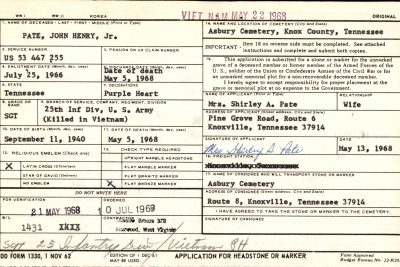 WW I WW II KOREA VIET NAM MAY 22 1968 ORIGINAL
1. NAME OF DECEASED - LAST - FIRST - MIDDLE (Print or Type)
PATE, JOHN HENRY, Jr.
14. NAME AND LOCATION OF CEMETERY (City and State)
Asbury Cemetery, Knox County, Tennessee
2. SERVICE NUMBER
US 53 447 255
3. PENSION OR VA CLAIM NUMBER
IMPORTANT. Item 18 on reverse side must be completed. See attached instructions and complete and submit both copies.
4. ENLISTMENT DATE (Month, day, year)
July 25, 1966
5. DISCHARGE DATE (Month, day, year)
Date of death
May 5, 1968
15. This application is submitted for a stone or marker for the unmarked
grave of a deceased member or former member of the Armed Forces of the
U. S., soldier of the Union or Confederate Armies of the Civil War or for
an unmarked memorial plot for a non-recoverable deceased member.
I hereby agree to accept responsibility for proper placement at the
grave or memorial plot at no expense to the Government.
6. STATE
Tennessee
7. DECORATIONS
Purple Heart
8. GRADE OR RANK
SGT
9. BRANCH OF SERVICE, COMPANY, REGIMENT, DIVISION
25th Inf Div, U. S. Army
(Killed in Vietnam)
Mrs. Shirley A. Pate
RELATIONSHIP
Wife
Pine Grove Road, Route 6
Knoxville, Tennessee 37914
10. DATE OF BIRTH (Month, day, year)
September 11, 1940
11. DATE OF DEATH (Month, day, year)
May 5, 1968
SIGNATURE OF APPLICANT
Mrs Shirley A. Pate
DATE
May 13, 1968
12. RELIGIOUS EMBLEM (Check one)
X LATIN CROSS (Christian)
STAR OF DAVID (Hebrew)
NO EMBLEM
13. CHECK TYPE REQUIRED
UPRIGHT MARBLE HEADSTONE
FLAT MARBLE MARKER
FLAT GRANITE MARKER
X FLAT BRONZE MARKER
16. FREIGHT STATION
17. NAME OF CONSIGNEE WHO WILL TRANSPORT STONE OR MARKER
Asbury Cemetery
DO NOT WRITE HERE
ADDRESS OF CONSIGNEE (Street address, City and State)
Route 8, Knoxville, Tennessee 37914
FOR VERIFICATION
21 MAY 1968
ORDERED
10 JUL 1969
I HAVE AGREED TO TAKE THE STONE OR MARKER TO THE CEMETERY.
B/L
1431 XIXX
SIGNATURE OF CONSIGNEE
DD FORM 1330, 1 NOV 62
EDITION OF 1 DEC 61
MAY BE USED
APPLICATION FOR HEADSTONE OR MARKER
Form Approved